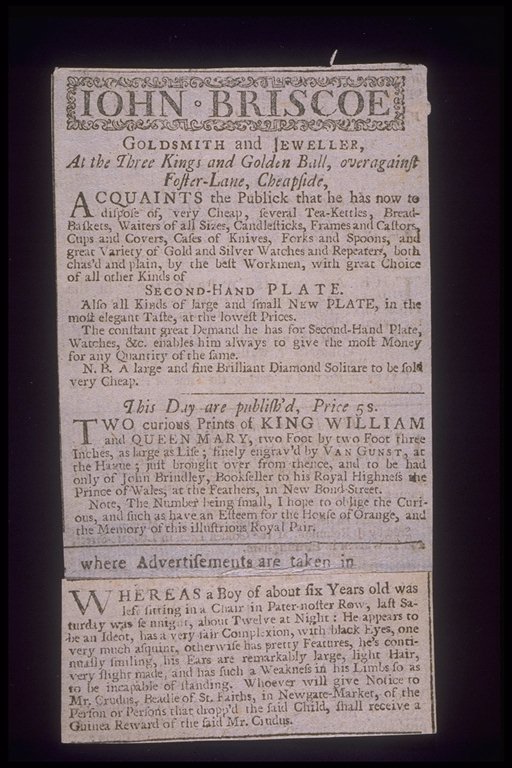 IOHN · BRISCOE
GOLDSMITH and JEWELLER,
At the Three Kings and Golden Ball, overagainſt
Foſter-Lane, Cheapſide,
ACQUAINTS the Publick that he has now to
diſpoſe of, very Cheap, ſeveral Tea-Kettles, Bread-
Baſkets, Waiters of all Sizes, Candleſticks, Frames and Caſtors,
Cups and Covers, Caſes of Knives, Forks and Spoons, and
great Variety of Gold and Silver Watches and Repeaters, both
chas'd and plain, by the beſt Workmen, with great Choice
of all other Kinds of
SECOND-HAND PLATE.
Alſo all Kinds of large and ſmall NEW PLATE, in the
moſt elegant Taſte, at the loweſt Prices.
The conſtant great Demand he has for Second-Hand Plate,
Watches, &c. enables him always to give the moſt Money
for any Quantity of the ſame.
N. B. A large and fine Brilliant Diamond Solitare to be ſold
very Cheap.
This Day are publiſh'd, Price 5 s.
TWO curious Prints of KING WILLIAM
and QUEEN MARY, two Foot by two Foot three
Inches, as large as Life; finely engrav'd by VAN GUNST, at
the Hague; juſt brought over from thence, and to be had
only of John Brindley, Bookſeller to his Royal Highneſs the
Prince of Wales, at the Feathers, in New Bond-Street.
Note, The Number being ſmall, I hope to oblige the Curi-
ous, and ſuch as have an Eſteem for the Houſe of Orange, and
the Memory of this illuſtrious Royal Pair.
where Advertiſements are taken in
WHEREAS a Boy of about ſix Years old was
left ſitting in a Chair in Pater-noſter Row, laſt Sa-
turday was ſe'nnight, about Twelve at Night: He appears to
be an Ideot, has a very fair Complexion, with black Eyes, one
very much aſquint, otherwiſe has pretty Features, he's conti-
nually ſmiling, his Ears are remarkably large, light Hair,
very ſlight made, and has ſuch a Weakneſs in his Limbs ſo as
to be incapable of ſtanding. Whoever will give Notice to
Mr. Crudus, Beadle of St. Faiths, in Newgate-Market, of the
Perſon or Perſons that dropp'd the ſaid Child, ſhall receive a
Guinea Reward of the ſaid Mr. Crudus.